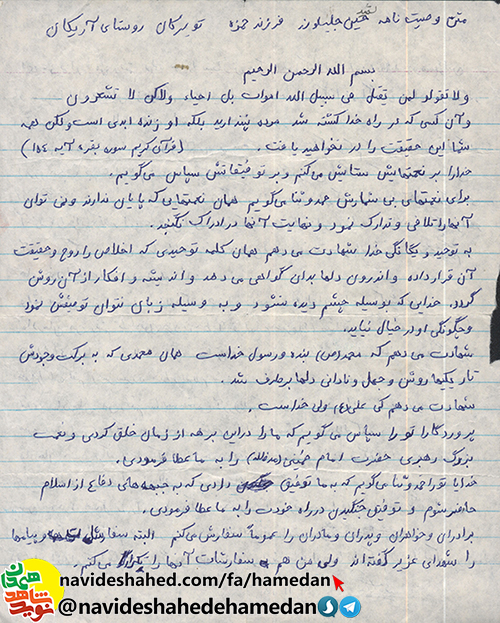 متن وصیت نامه شهید حسین جلیلوند فرزند حمزه تویسرکان روستای آریکان
بسم الله الرحمن الرحیم
ولا تقولو لمن یقتل فی سبیل الله اموات بل احیاء ولاکن لا تشعرون
و آن کسی که در راه خدا کشته شد مرده نپندارید بلکه او زنده ابدی است ولکن همه
شما این حقیقت را در نخواهید یافت. (قرآن کریم سوره بقره آیه ۱۵۴)
خدا را بر نعمتهایش ستایش می کنم و بر توفیقاتش سپاس می گویم.
برای نعمتهای بی شمارش حمد و ثنا می گویم همان نعمتهایی که پایان ندارند و نمی توان
آنها را تلافی و تدارک نمود و نهایت آنها در ادراک نگنجد.
به توحید و یگانگی خدا شهادت می دهم همان کلمه توحیدی که اخلاص را روح و حقیقت
آن قرار داده و اندرون دلها بدان گواهی می دهد و اندیشه و افکار از آن روشن
گردد. خدایی که بوسیله چشم دیده نشود و به وسیله زبان نتوان توصیفش نمود
و چگونگی او در خیال نیاید.
شهادت می دهم که محمد (ص) بنده و رسول خداست همان محمدی که به برکت وجودش
تاریکیها روشن و جهل و نادانی دلها برطرف شد.
شهادت می دهم کی علی (ع) ولی خداست.
پروردگارا تو را سپاس می گویم که ما را در این برهه از زمان خلق کردی و نعمت
بزرگ رهبری حضرت امام خمینی (مدظله) را به ما عطا فرمودی.
خدایا تو را حمد و ثنا می گویم که به ما توفیق دادی که به جبهه های دفاع از اسلام
حاضر شوم و توفیق جنگیدن در راه خودت را به ما عطا فرمودی.
برادران و خواهران و پدران و مادران را عموماً سفارش می کنم البته سفارش ها و پیامها
را شهدای عزیز گفته اند ولی من هم سفارشات آنها را تکرار می کنم.
نوید شاهد همدان
navideshahed.com/fa/hamedan
@navideshahedehamedan